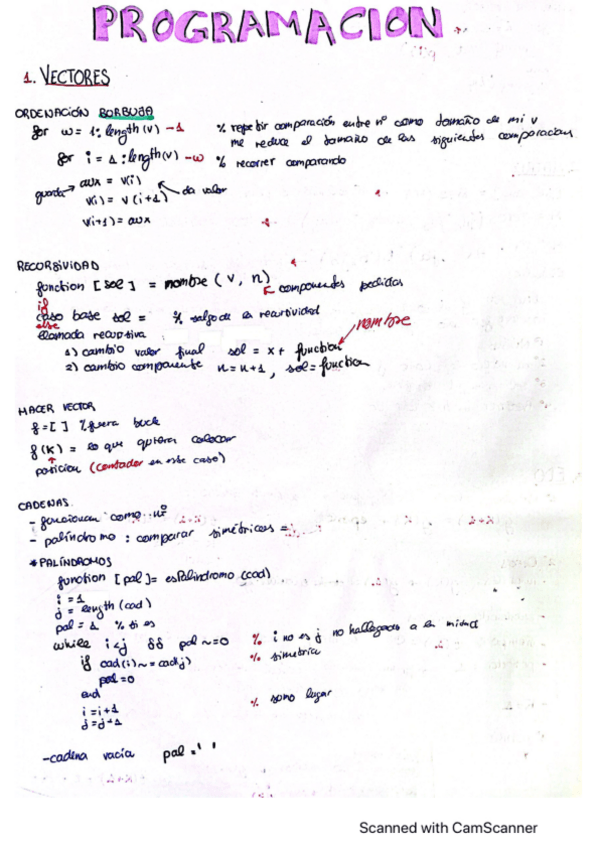 PROGRAMACION
1. VECTORES
ORDENACIÓN BORBUJA
for w = 1: length(v) -1 % repetir comparación entre nº como tamaño de mi v
me reduce el tamaño de las siguientes comparacion
for i = 1 : length(v) -w % recorrer comparando
guarda → aux = v(i) da valor
v(i) = v(i+1)
v(i+1) = aux
RECURSIVIDAD
function [sol] = nombre (v, n)
componentes pedidas
if
caso base sol = % salgo de la recursividad
else
llamada recursiva : nombre
1) cambio valor final sol = x + function
2) cambio componente n = n+1, sol = function
HACER VECTOR
f = [ ] % fuera bucle
f(k) = lo que quiera colocar
posicion (contador en este caso)
CADENAS.
- funcionan como nº
- palíndromo : comparar simétricos =
*PALÍNDROMOS
function [pal] = esPalindromo (cad)
i = 1
j = length (cad)
pal = 1 % si es
while i<j && pal ~=0 % i no es j no hallegado a la mitad
if cad(i) ~= cad(j) % simetría
pal = 0
end
i = i+1 % sumo lugar
j = j-1
-cadena vacía pal = ' '
Scanned with CamScanner